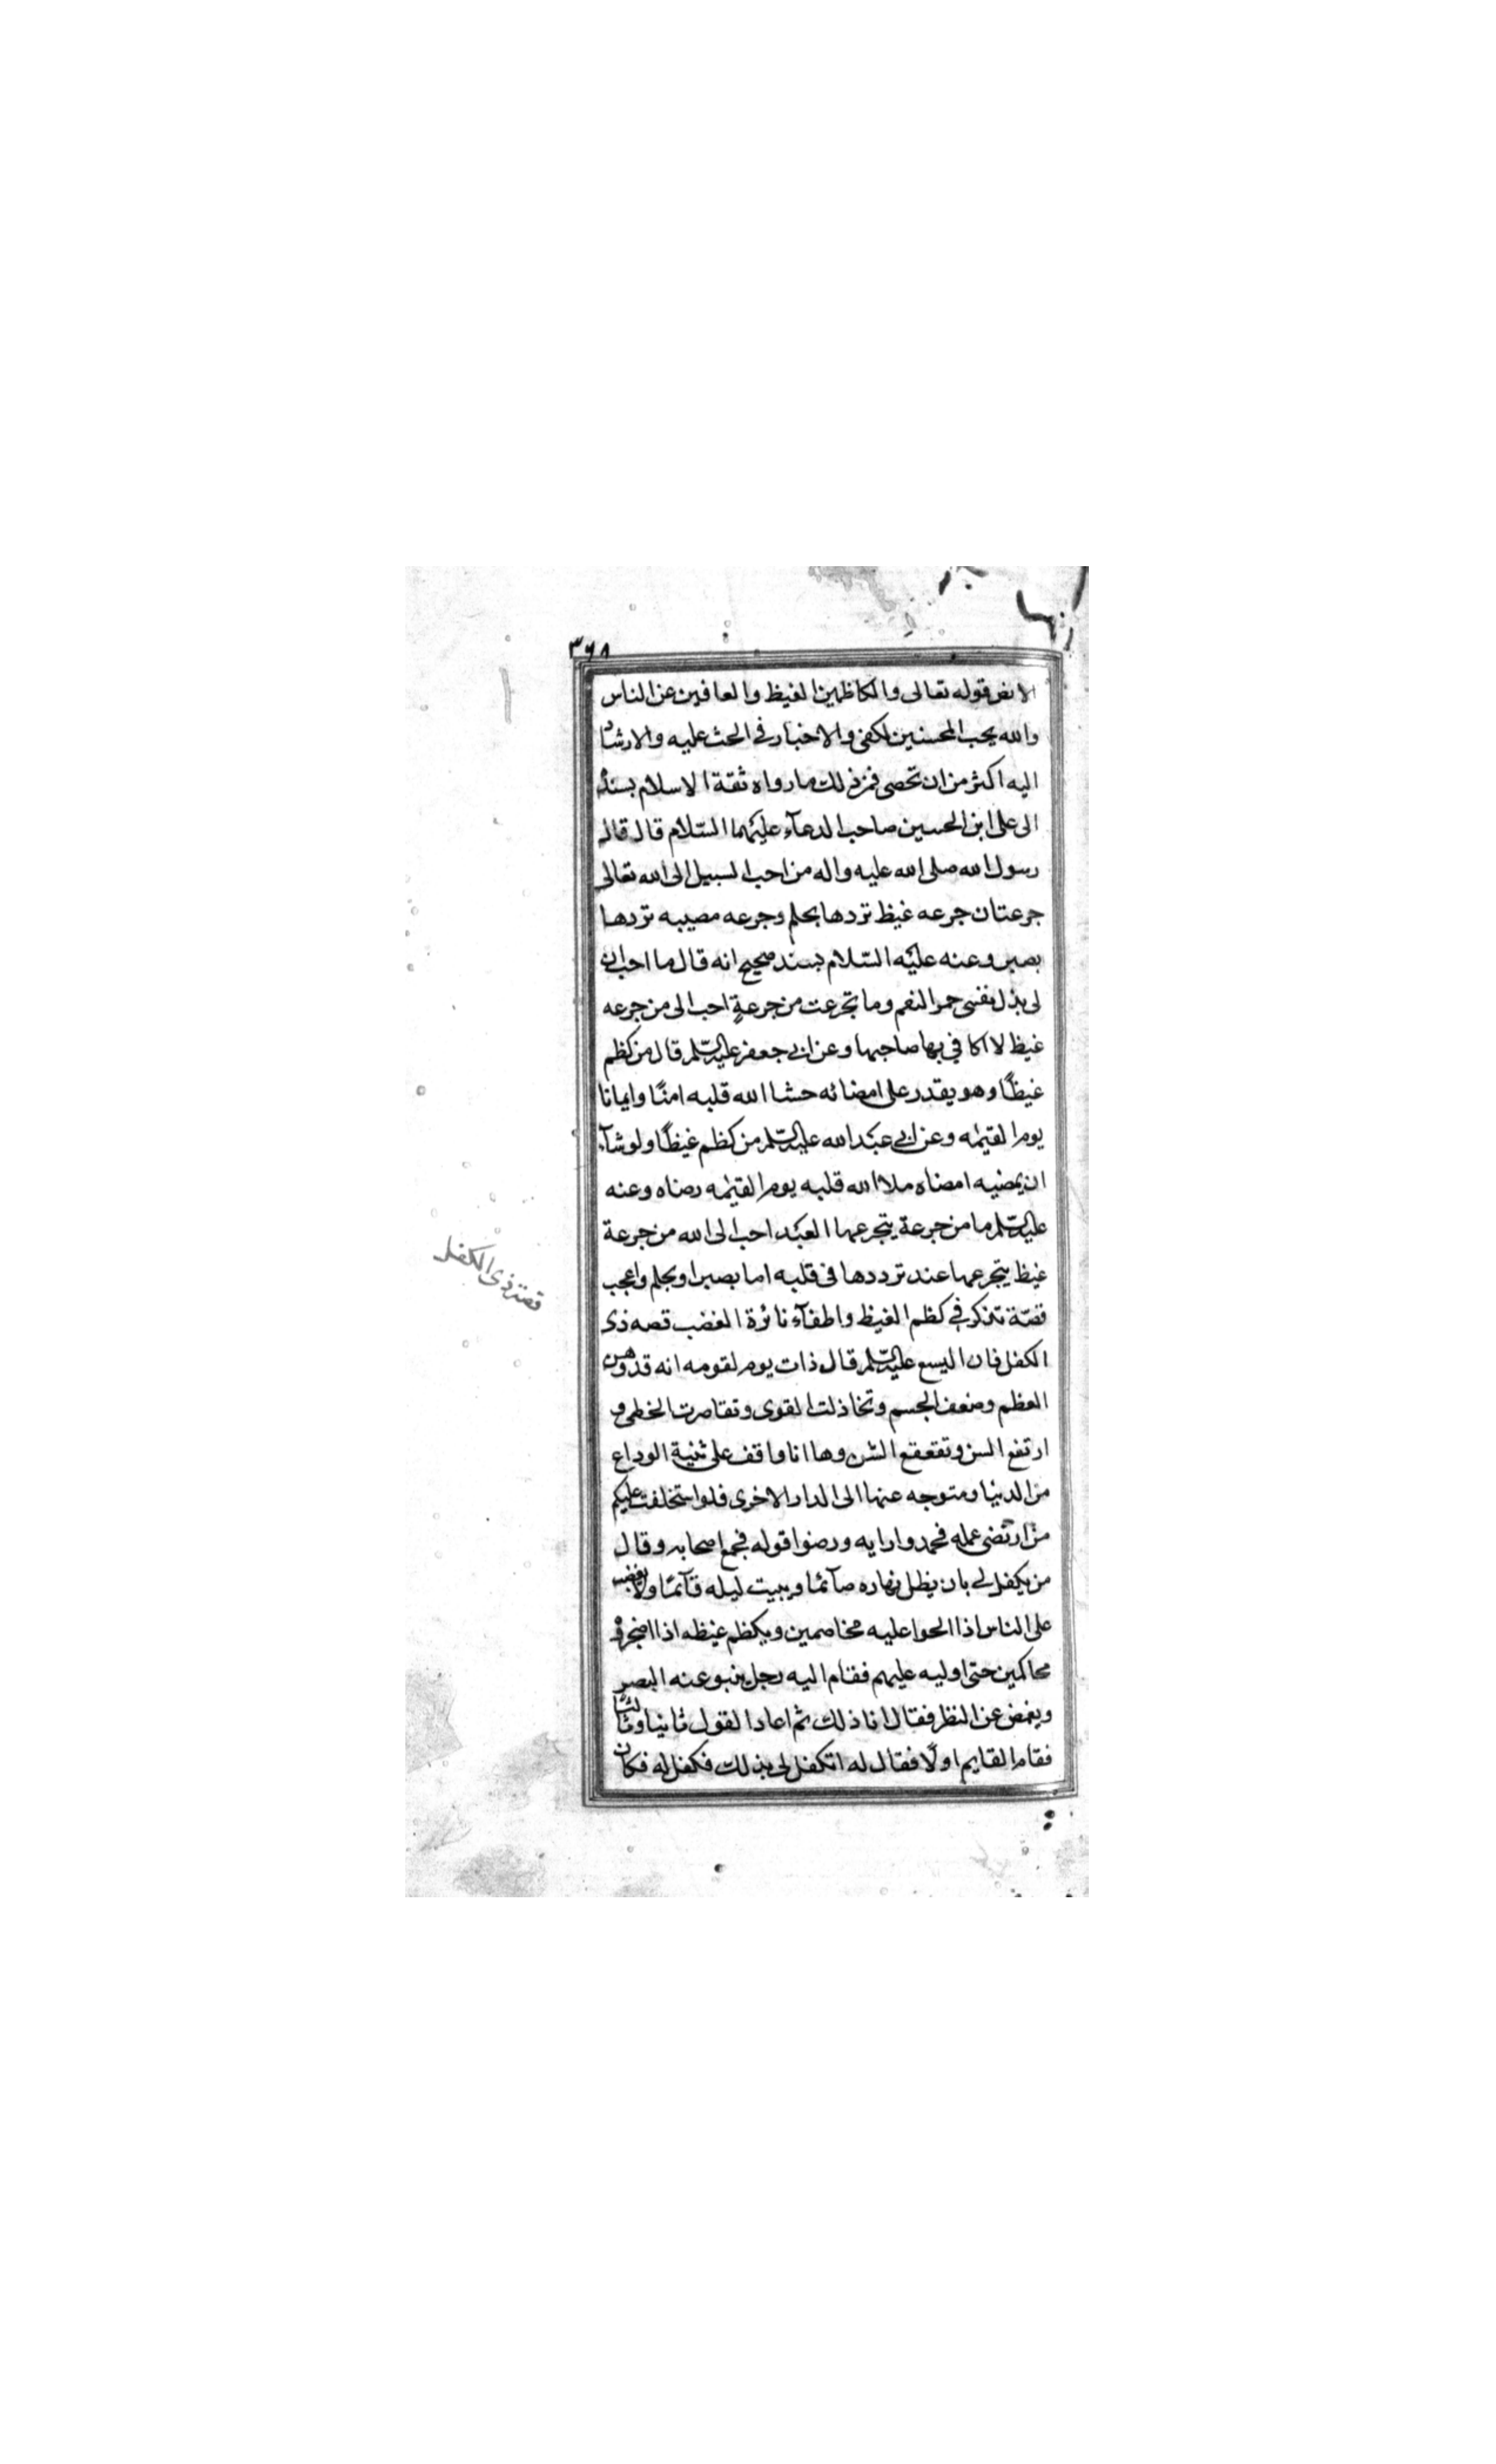 ٣٦٨
الا نص قوله تعالى والكاظمين الغيظ والعافين عن الناس
والله يحب المحسنين لكفى والاخبار في الحث عليه والارشاد
اليه اكثر من ان تحصى فمن ذلك ما رواه ثقة الاسلام بسنده
الى على ابن الحسين صاحب الدعآء عليهما السّلام قال قال
رسول الله صلى الله عليه واله من احب السبيل الى الله تعالى
جرعتان جرعه غيظ تردها بحلم وجرعه مصيبه تردها
بصبر وعنه عليه السّلام بسند صحيح انه قال ما احب ان
لى بذل نفسى حمر النعم وما تجرعت من جرعةٍ احب الى من جرعه
غيظ لا اكافى بها صاحبها وعن ابي جعفر عليه السّلم قال من كظم
غيظًا وهو يقدر على امضائه حشا الله قلبه امنًا وايمانا
يوم القيٰمه وعن ابي عبد الله عليه السّلم من كظم غيظًا ولو شآء
ان يمضيه امضاه ملا الله قلبه يوم القيٰمه رضاه وعنه
عليه السّلم ما من جرعة يتجرعها العبد احب الى الله من جرعة
غيظ يتجرعها عند ترددها فى قلبه اما بصبر او بحلم واعجب
قصّة تذكر في كظم الغيظ واطفآء نائرة الغضب قصه ذى
الكفل فان اليسع عليه السّلم قال ذات يوم لقومه انه قد وهن
العظم وضعف الجسم وتخاذلت القوى وتقاصرت الخطى و
ارتفع السن وتقعقع الشن وها انا واقف على ثنية الوداع
من الدنيا ومتوجه عنها الى الدار الاخرى فلو استخلفت عليكم
من ارتضى عمله فحمدوا رايه ورضوا قوله فجمع اصحابه وقال
من يكفل لى بان يظل نهاره صآئما ويبيت ليله قآئمًا ولا يغضب
على الناس اذا الحوا عليه مخاصمين ويكظم غيظه اذا اضجروه
محاكمين حتى اوليه عليهم فقام اليه رجل ينبو عنه البصر
ويغمض عن النظر فقال انا ذلك ثم اعاد القول ثانيا وثالثا
فقام القايم اولًا فقال له اتكفل لى بذلك فكفل له فكان
قصة ذى الكفل